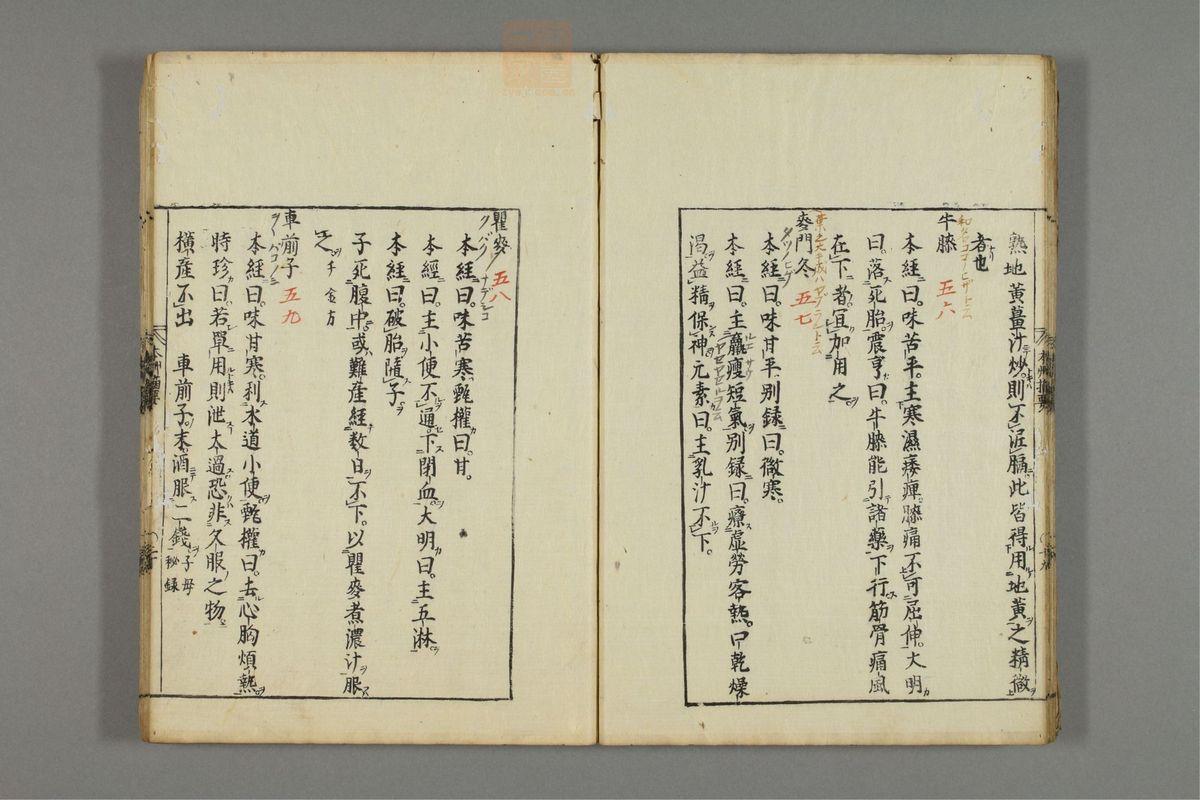 熟地黄薑汁炒則不泥膈此皆得用地黄之精微
者也
牛膝 五六
本經曰味苦平主寒濕痿痺膝痛不可屈伸大明
曰落死胎震亨曰牛膝能引諸藥下行筋骨痛風
在下者宜加用之
麥門冬 五七
本經曰味甘平別録曰微寒
本經曰主羸瘦短氣別録曰療虚勞客熱口乾燥
渴益精保神元素曰主乳汁不下
瞿麥 五八
本経曰味苦寒甄權曰甘
本經曰主小便不通下閉血大明曰主五淋
本経曰破胎隨子
子死腹中或難産経数日不下以瞿麥煮濃汁服
之 千金方
車前子 五九
本経曰味甘寒利水道小便甄權曰去心胸煩熱
時珍曰若單用則泄太過恐非久服之物
横産不出 車前子末酒服二錢 子母秘録